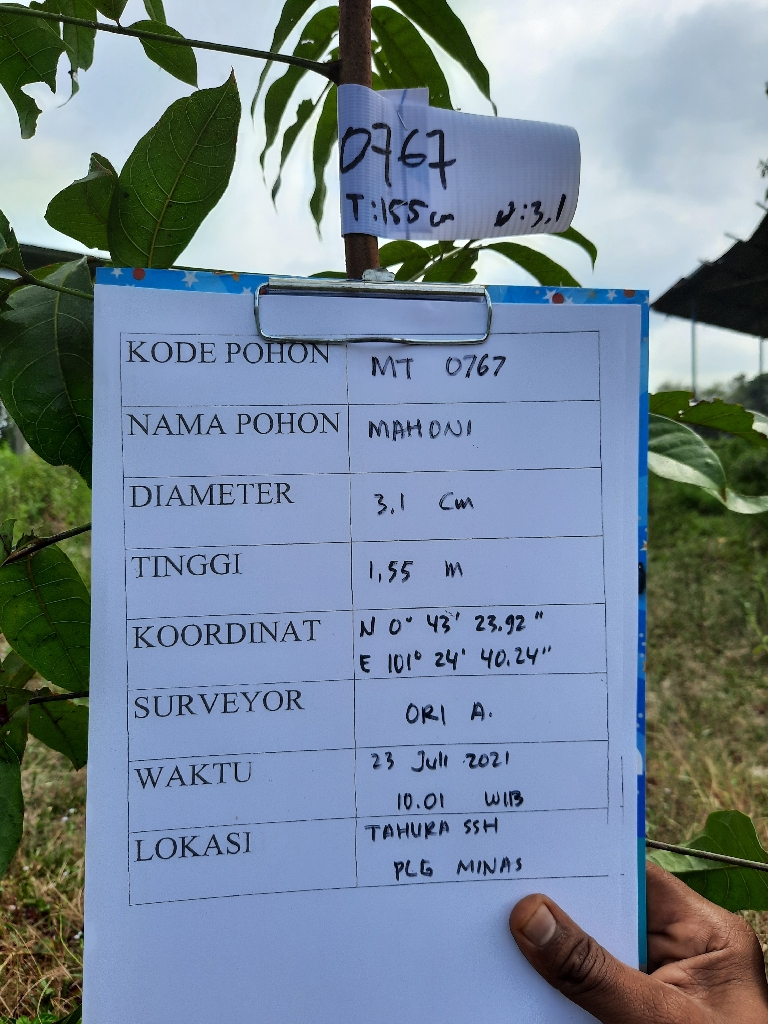 0767
T:155 cm D:3,1
KODE POHON MT 0767
NAMA POHON MAHONI
DIAMETER 3.1 Cm
TINGGI 1,55 m
KOORDINAT N 0° 43' 23.92"
E 101° 24' 40.24"
SURVEYOR ORI A.
WAKTU 23 Juli 2021
10.01 WIB
LOKASI TAHURA SSH
PLG MINAS